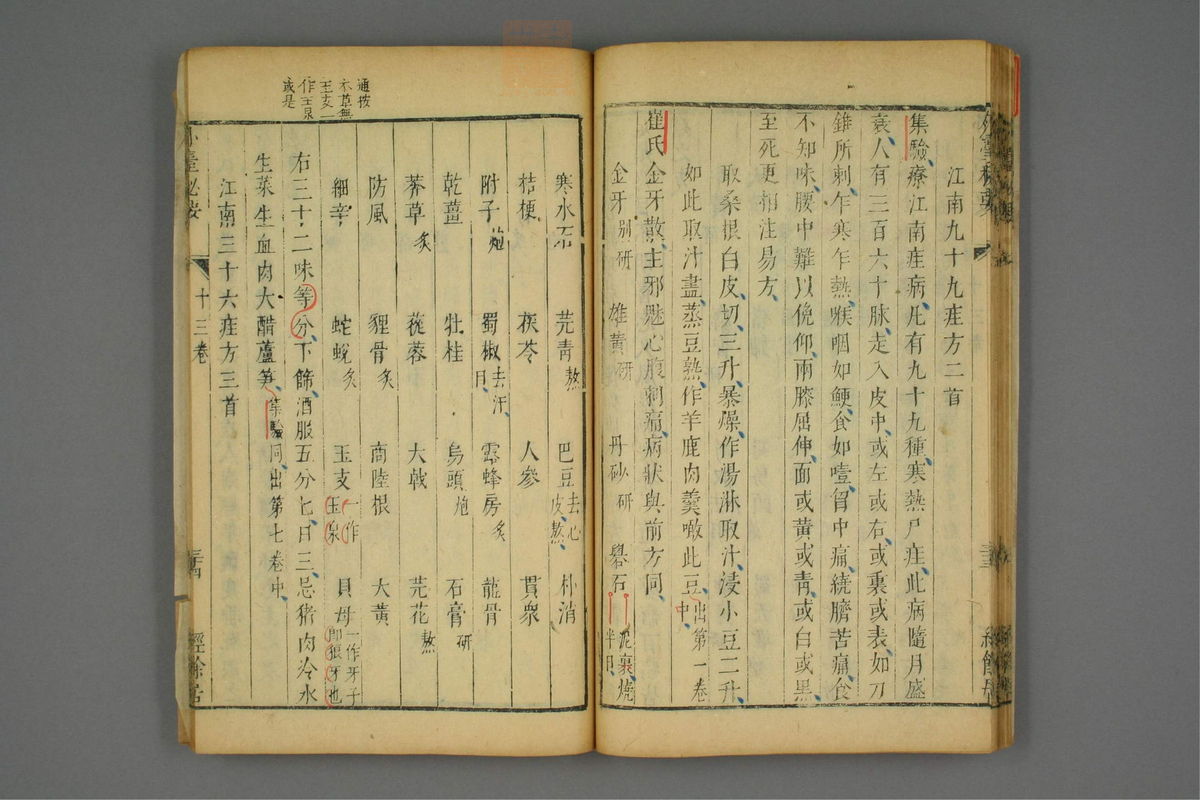 江南九十九疰方二首
集驗療江南疰病凡有九十九種寒熱尸疰此病隨月盛
衰人有三百六十脉走入皮中或左或右或裏或表如刀
錐所刺乍寒乍熱喉咽如鯁食如噎胷中痛繞臍苦痛食
不知味腰中難以俛仰兩膝屈伸面或黃或青或白或黑
至死更相注易方
取桑根白皮切三升暴燥作湯淋取汁浸小豆二升
如此取汁盡蒸豆熟作羊鹿肉羹噉此豆出第一卷中
崔氏金牙散主邪魅心腹刺痛病狀與前方同
金牙別研 雄黃研 丹砂研 礜石泥裹燒半日
寒水石 芫青熬 巴豆去心皮熬 朴消
桔梗 茯苓 人參 貫衆
附子炮 蜀椒去汗目 露蜂房炙 龍骨
乾薑 牡桂 烏頭炮 石膏研
莽草炙 蓯蓉 大戟 芫花熬
防風 貍骨炙 商陸根 大黃
細辛 蛇蛻炙 玉支一作玉泉 貝母一作牙子即狼牙也
右三十二味等分下篩酒服五分匕日三忌猪肉冷水
生菜生血肉大醋蘆笋集驗同出第七卷中
江南三十六疰方三首
通按
本草無
玉支一
作玉泉
或是
十三卷